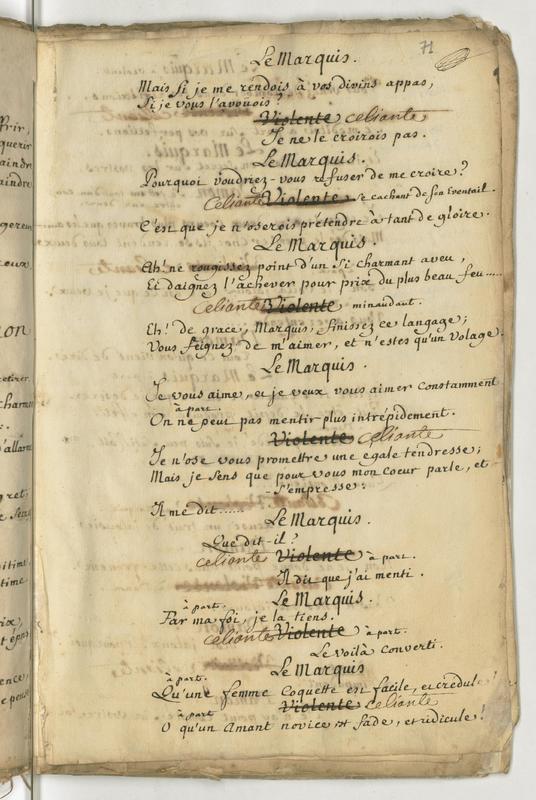 71
Le Marquis.
Mais si je me rendois à vos divins appas,
Si je vous l'avouois ?
Violente celiante
Je ne le croirois pas.
Le Marquis.
Pourquoi voudriez-vous refuser de me croire ?
Celiante Violente se cachant de son Eventail.
C'est que je n'oserois prétendre à tant de gloire.
Le Marquis.
Ah! ne rougissez point d'un si charmant aveu,
Et daignez l'achever pour prix du plus beau feu.....
Celiante Violente minaudant.
Eh! de grace, Marquis, finissez ce langage;
Vous feignez de m'aimer, et n'estes qu'un volage.
Le Marquis.
Je vous aime, et je veux vous aimer constamment
à part.
On ne peut pas mentir plus intrépidement.
Violente Celiante
Je n'ose vous promettre une egale tendresse;
Mais je sens que pour vous mon coeur parle, et
s'empresse:
Il me dit......
Le Marquis.
Que dit-il ?
celiante Violente à part.
Il dit que j'ai menti.
Le Marquis.
à part.
Par ma foi, je la tiens.
celiante Violente à part.
Le voilà converti.
Le Marquis
à part.
Qu'une femme Coquette est facile, et credule!
Violente celiante
à part
O qu'un Amant novice est fade, et ridicule!